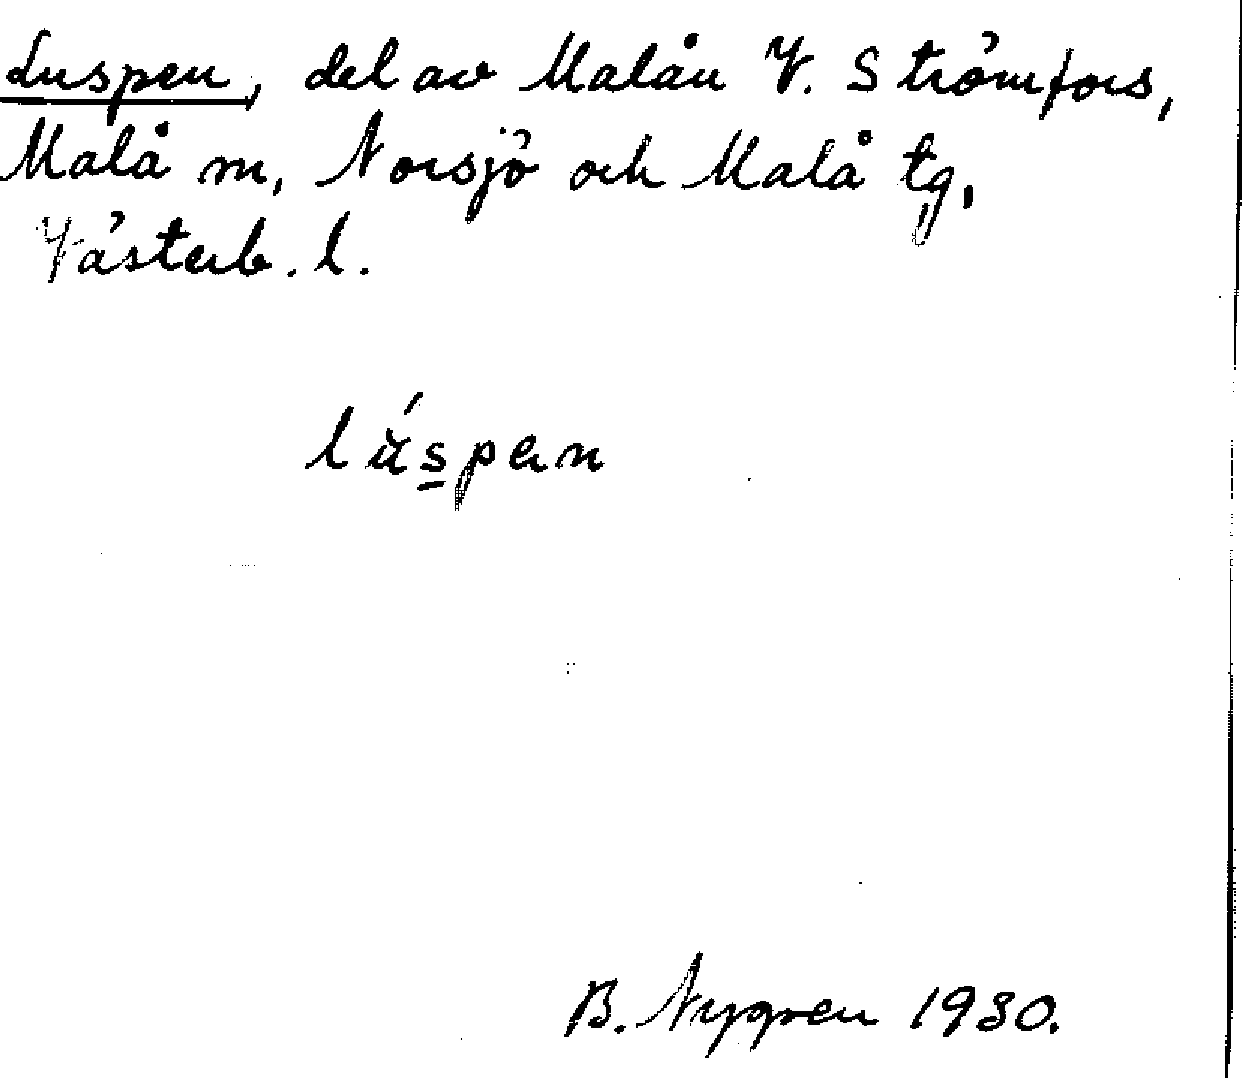 Luspen, del av Malån V. Strömfors,
Malå sn, Norsjö och Malå tg,
Västerb. l.
lúspen
B. Nygren 1930.